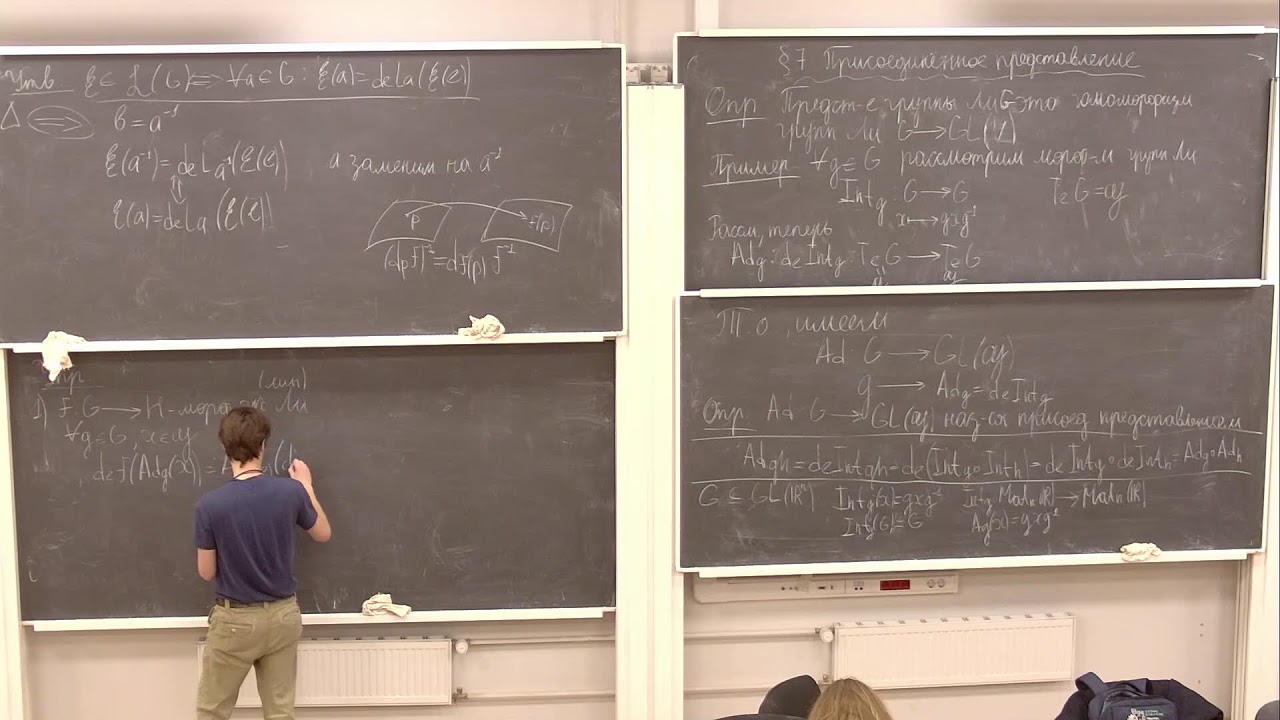 Утв ξ ∈ L(G) ⟺ ∀a ∈ G : ξ(a) = d_e L_a (ξ(e))
Δ ⟹ b = a⁻¹
ξ(a⁻¹) = d_e L_{a⁻¹} (ξ(e)) а заменим на a⁻¹
⇕
ξ(a) = d_e L_a (ξ(e))
p f(p)
(d_p f)⁻¹ = d_{f(p)} f⁻¹
Упр (лин)
1) F: G → H - морф-м гр Ли
∀g ∈ G, x ∈ 𝔤
d_e f(Ad_g(x)) =
§7 Присоединённое представление
Опр Предст-е группы Ли G это гомоморфизм
групп Ли G → GL(V)
Пример ∀g ∈ G рассмотрим морф-м групп Ли
Int_g : G → G T_e G = 𝔤
x ↦ gxg⁻¹
Рассм, теперь
Ad_g : d_e Int_g : T_e G → T_e G
𝔤 𝔤
Т.о, имеем
Ad G → GL(𝔤)
g → Ad_g = d_e Int_g
Опр Ad G → GL(𝔤) наз-ся присоед представлением
Ad_{gh} = d_e Int_{gh} = d_e (Int_g ∘ Int_h) = d_e Int_g ∘ d_e Int_h = Ad_g ∘ Ad_h
G ⊆ GL(ℝⁿ) Int_g(x) = gxg⁻¹ Int_g Mat_n(ℝ) → Mat_n(ℝ)
Int_g(G) = G Ad_g(x) = gxg⁻¹